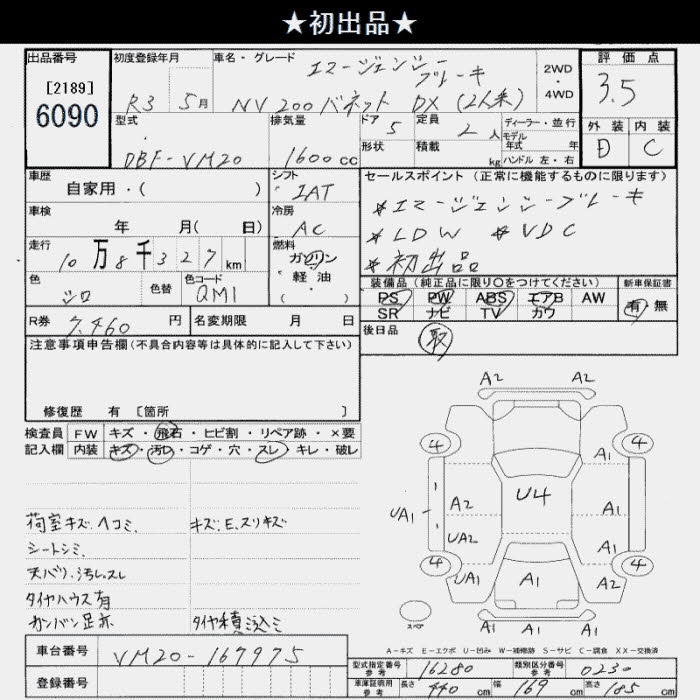 ★初出品★
出品番号 初度登録年月 車名・グレード エマージェンシーブレーキ 2WD 評価点
[2189] R3 5月 NV200バネット DX(2人乗) 4WD 3.5
6090
型式 排気量 ドア 5 定員 2人 ディーラー・並行 外装 内装
DBF-VM20 1600cc 形状 積載 kg モデル年式 年 ハンドル 左・右 D C
車歴 シフト セールスポイント(正常に機能するものに限ります)
自家用・( ) IAT *エマージェンシーブレーキ
車検 冷房 *LDW *VDC
年 月( 日) AC *初出品
走行 燃料
10万8千327km ガソリン・軽油 ( )
色 色替 色コード 装備品(純正品に限り○をつけてください) 新車保証書
シロ QM1 PS PW ABS エアB AW 有・無
SR ナビ TV カワ
R券 7,460円 名変期限 月 日 後日品 取
注意事項申告欄(不具合内容等は具体的に記入して下さい)
修復歴 有 [箇所 ]
検査員 FW キズ・飛石・ヒビ割・リペア跡・×要
記入欄 内装 キズ・汚レ・コゲ・穴・スレ・キレ・破レ
荷室キズ.ヘコミ. キズ.E.スリキズ
シートシミ.
天バリ.汚レ.スレ
タイヤハウス有
カンバン足赤 タイヤ積込ミ
A2 A2
4 4
A1
U4
UA1 A2 A1
UA2 A1
4 4
UA1 A1 A1
A1 A1
スペア
A-キズ E-エクボ U-凹み W-補修跡 S-サビ C-腐食 XX-交換済
車台番号 VM20-167975
登録番号
型式指定番号 参考 16280 類別区分番号 参考 0230
車庫証明用 参考 長さ 440cm 幅 169cm 高さ 185cm